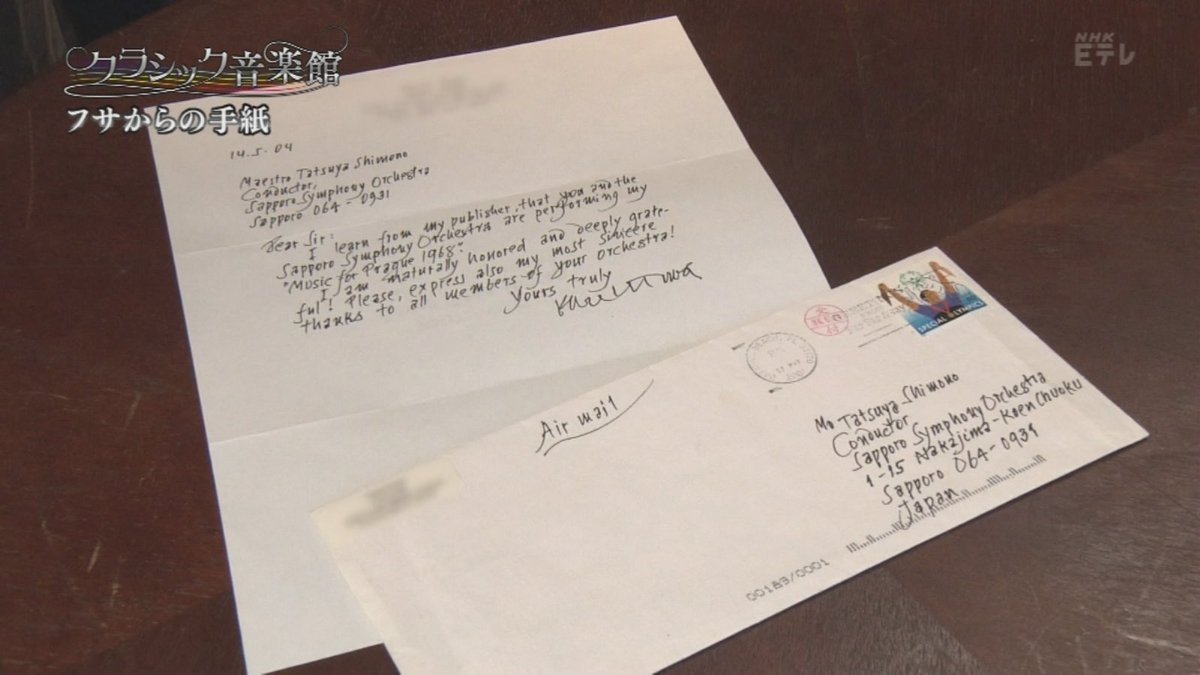 クラシック音楽館
フサからの手紙
NHK
Eテレ
14.5.04
Maestro Tatsuya Shimono
Conductor,
Sapporo Symphony Orchestra
Sapporo 064-0931
Dear Sir:
I learn from my publisher, that you and the
Sapporo Symphony Orchestra are performing my
"Music for Prague 1968".
I am naturally honored and deeply grate-
ful! Please, express also my most sincere
thanks to all members of your orchestra!
Yours truly
Air mail
SPECIAL OLYMPICS
Mo Tatsuya Shimono
Conductor
Sapporo Symphony Orchestra
1-15 Nakajima-Koen Chuoku
Sapporo 064-0931
Japan
00183/0001